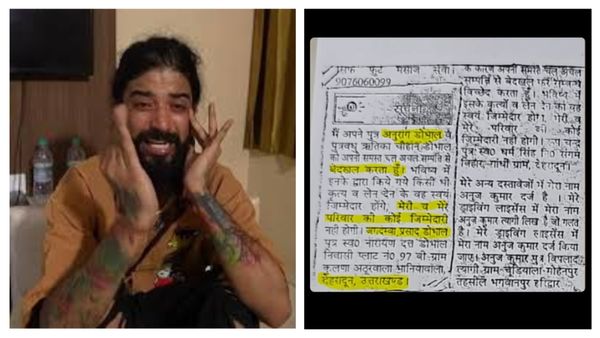 9076060099
मैं अपने पुत्र अनुराग डोभाल व
पुत्रवधु ऋतिका चौहान डोभाल
को अपनी समस्त चल अचल सम्पत्ति से
बेदखल करता हूँ। भविष्य में
इनके द्वारा किये गये किसी भी
कृत्य व लेन देन के वह स्वयं
जिम्मेदार होंगे, मेरी व मेरे
परिवार की कोई जिम्मेदारी
नहीं होगी। जगदम्बा प्रसाद डोभाल
पुत्र स्व0 नारायण दत्त डोभाल
निवासी प्लाट नं0 97 बी ग्राम
कुलणा अठूरवाला भानियावाला,
देहरादून, उत्तराखण्ड।
के कारण अपनी समस्त चल अचल
सम्पत्ति से बेदखल कर सम्बन्ध
विच्छेद करता हूँ। भविष्य में
इसके कृत्यों व लेन देन का वह
स्वयं जिम्मेदार होगा। मेरी व
मेरे परिवार की कोई
जिम्मेदारी नहीं होगी।
पुत्र स्व0 धर्म सिंह
विहार, गांधी ग्राम, देहरादून
मेरे अन्य दस्तावेजों में मेरा नाम
अनुज कुमार दर्ज है। मेरे
ड्राइविंग लाइसेंस में मेरा नाम
अनुज कुमार त्यागी लिखा है जो गलत
है। मेरे ड्राइविंग लाइसेंस में
मेरा नाम अनुज कुमार दर्ज किया
जाए। अनुज कुमार पुत्र
त्यागी ग्राम
तहसील भगवानपुर हरिद्वार